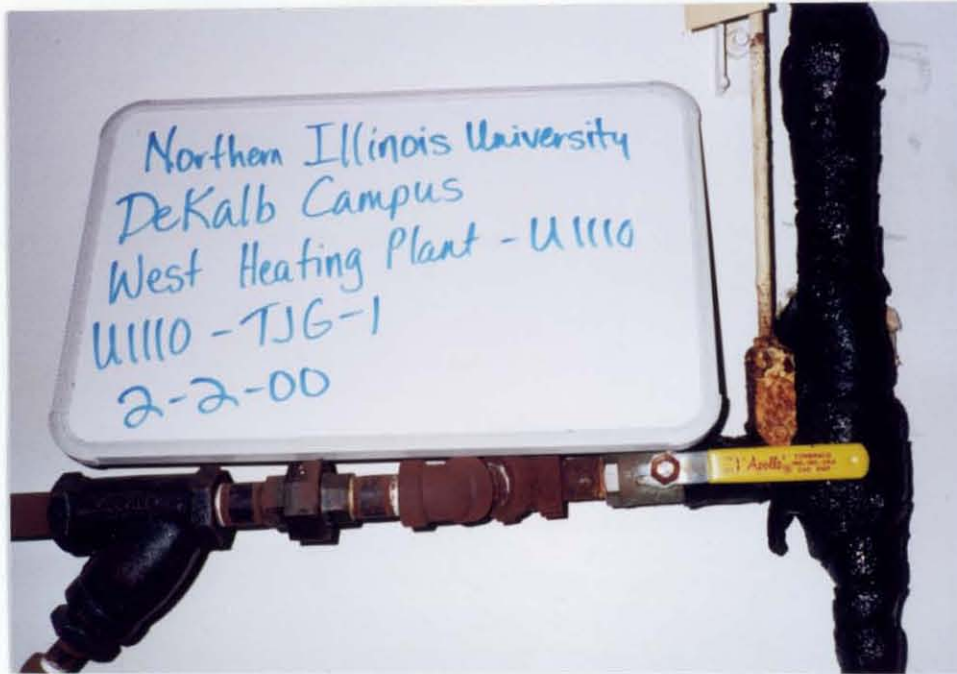 Northern Illinois University
DeKalb Campus
West Heating Plant - U1110
U1110 - TJG-1
2-2-00
Apollo